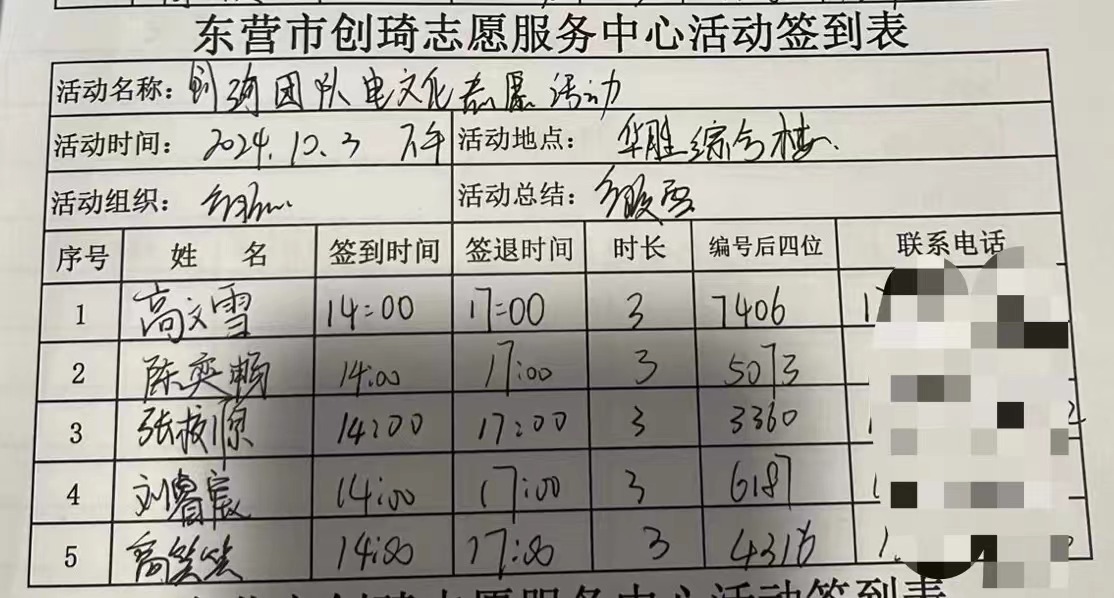 东营市创琦志愿服务中心活动签到表
活动名称：创琦团队电文化志愿活动
活动时间：2024.10.3 下午 活动地点：华胜综合楼
活动组织： 活动总结：
序号 姓 名 签到时间 签退时间 时长 编号后四位 联系电话
1 高文雪 14:00 17:00 3 7406 1
2 陈奕 14:00 17:00 3 5073
3 张 源 14:00 17:00 3 3360 1 2
4 刘睿宸 14:00 17:00 3 6187 1
5 高笑笑 14:00 17:00 3 4316 1
东营市创琦志愿服务中心活动签到表